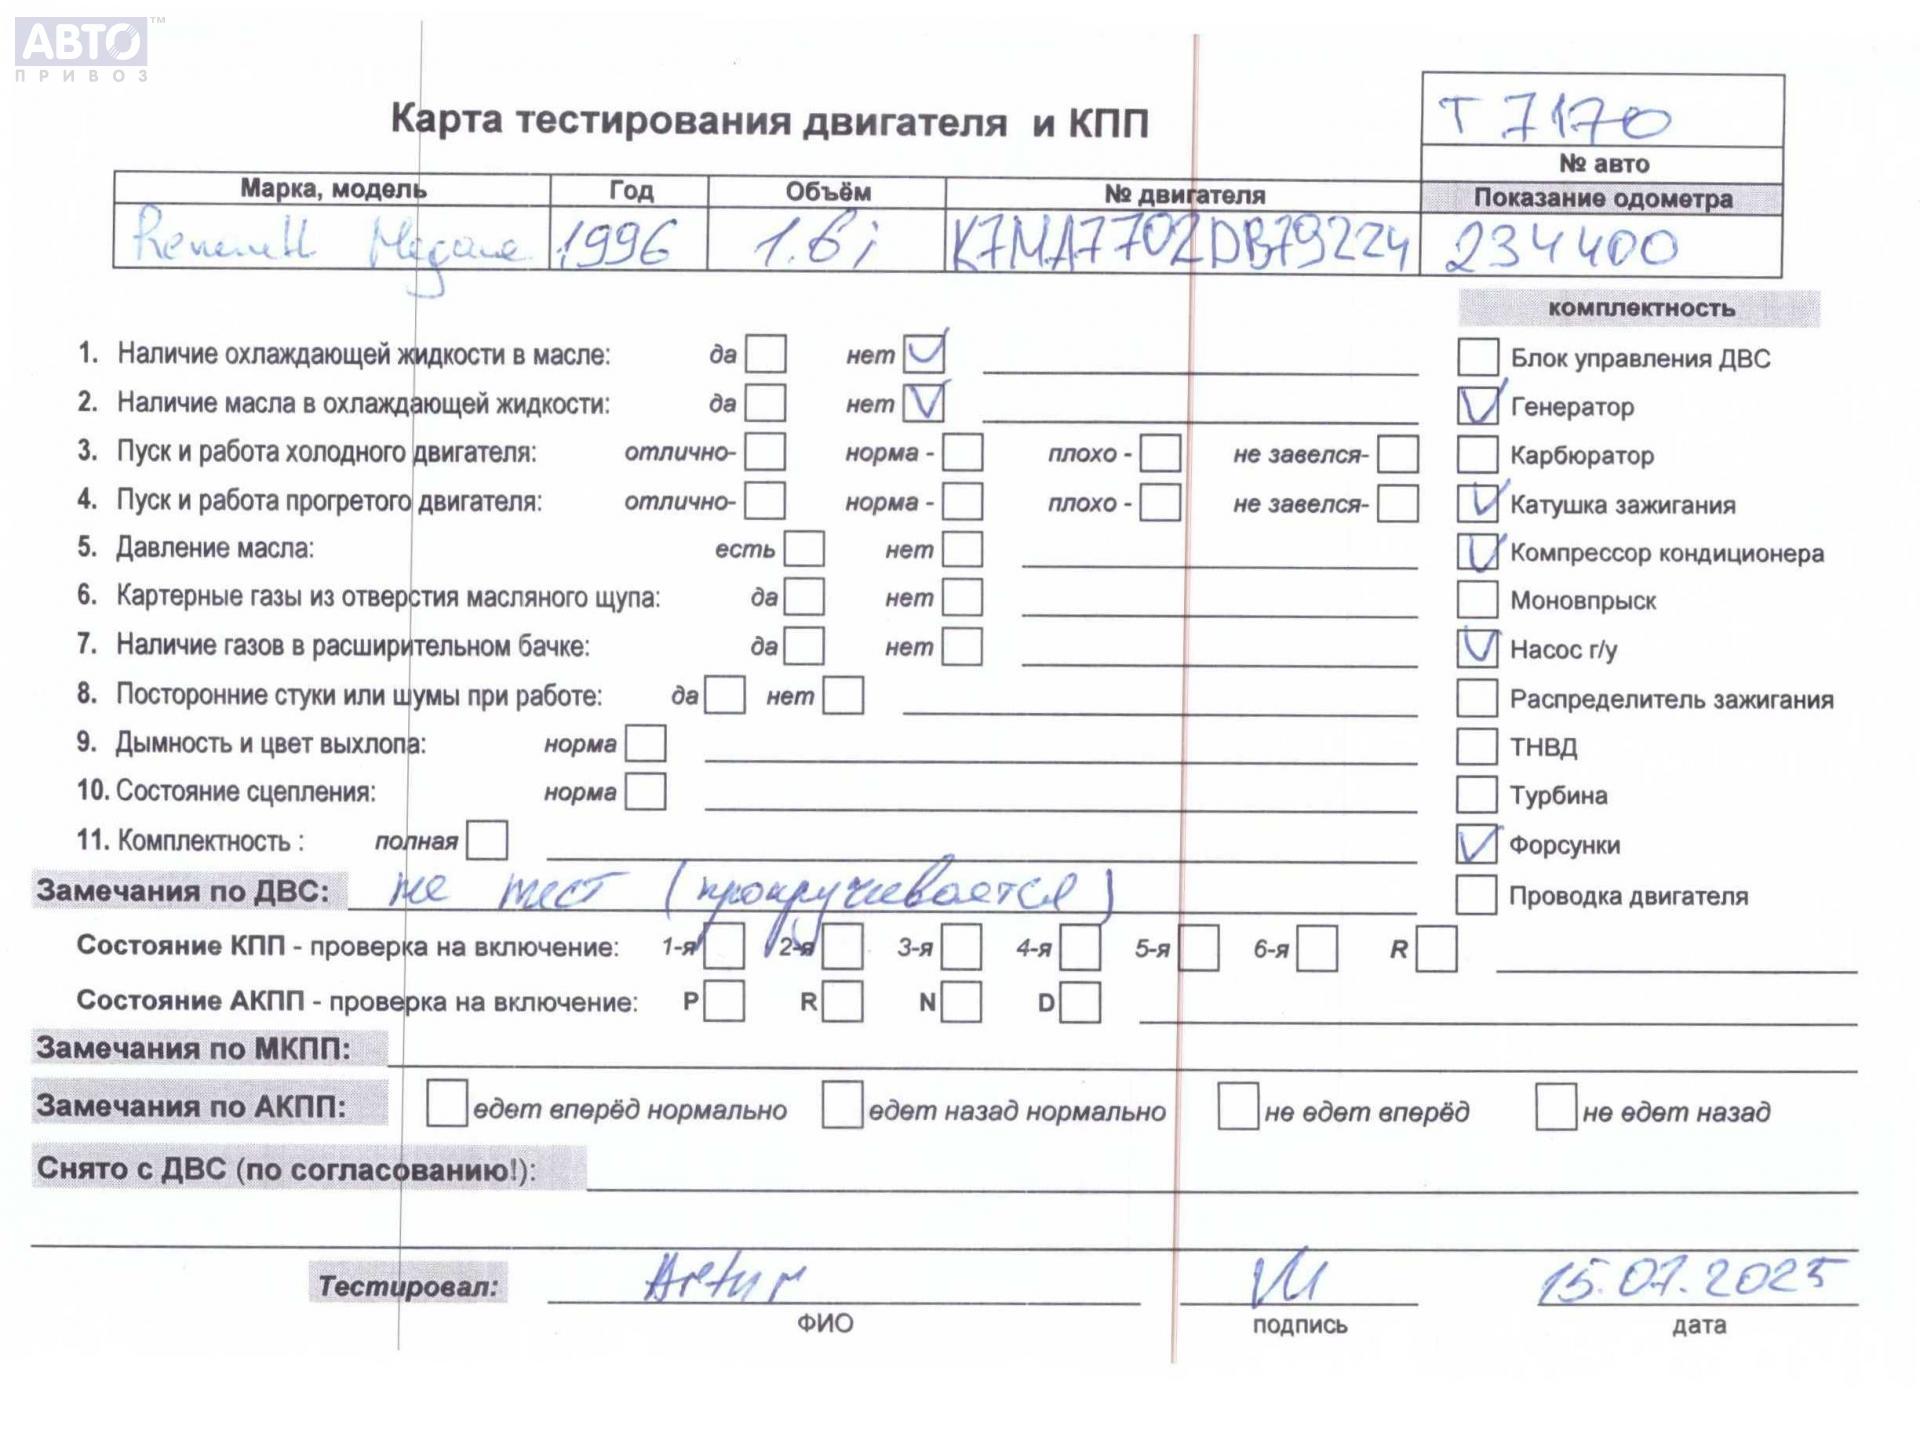 АВТО™
ПРИВОЗ
Карта тестирования двигателя и КПП
T 7170
№ авто
Марка, модель Год Объём № двигателя Показание одометра
Renault Megane 1996 1.6i K7MA7702DB79224 234400
комплектность
1. Наличие охлаждающей жидкости в масле: да нет
Блок управления ДВС
2. Наличие масла в охлаждающей жидкости: да нет
Генератор
3. Пуск и работа холодного двигателя: отлично- норма - плохо - не завелся-
Карбюратор
4. Пуск и работа прогретого двигателя: отлично- норма - плохо - не завелся-
Катушка зажигания
5. Давление масла: есть нет
Компрессор кондиционера
6. Картерные газы из отверстия масляного щупа: да нет
Моновпрыск
7. Наличие газов в расширительном бачке: да нет
Насос г/у
8. Посторонние стуки или шумы при работе: да нет
Распределитель зажигания
9. Дымность и цвет выхлопа: норма
ТНВД
10. Состояние сцепления: норма
Турбина
11. Комплектность : полная
Форсунки
Замечания по ДВС: не тест (прокручивается)
Проводка двигателя
Состояние КПП - проверка на включение: 1-я 2-я 3-я 4-я 5-я 6-я R
Состояние АКПП - проверка на включение: P R N D
Замечания по МКПП:
Замечания по АКПП: едет вперёд нормально едет назад нормально не едет вперёд не едет назад
Снято с ДВС (по согласованию!):
Тестировал: Artur 15.07.2025
ФИО подпись дата